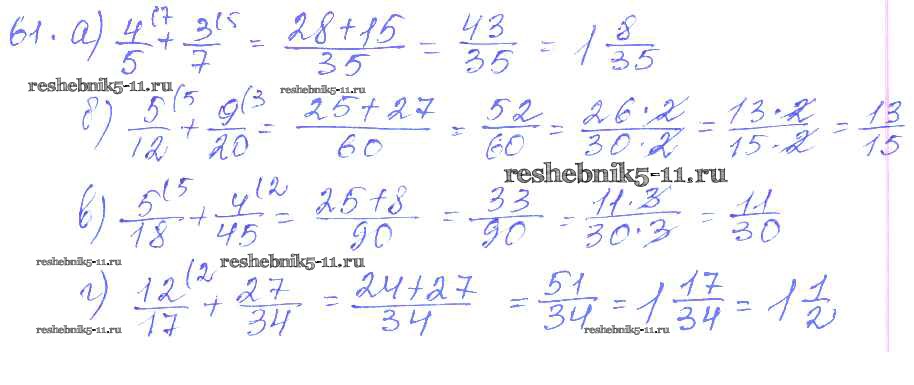 61. а) 4/5 (7 + 3/7 (5 = 28+15/35 = 43/35 = 1 8/35
reshebnik5-11.ru reshebnik5-11.ru
б) 5/12 (5 + 9/20 (3 = 25+27/60 = 52/60 = 26·2/30·2 = 13·2/15·2 = 13/15
reshebnik5-11.ru
в) 5/18 (5 + 4/45 (2 = 25+8/90 = 33/90 = 11·3/30·3 = 11/30
reshebnik5-11.ru reshebnik5-11.ru
г) 12/17 (2 + 27/34 = 24+27/34 = 51/34 = 1 17/34 = 1 1/2
reshebnik5-11.ru reshebnik5-11.ru